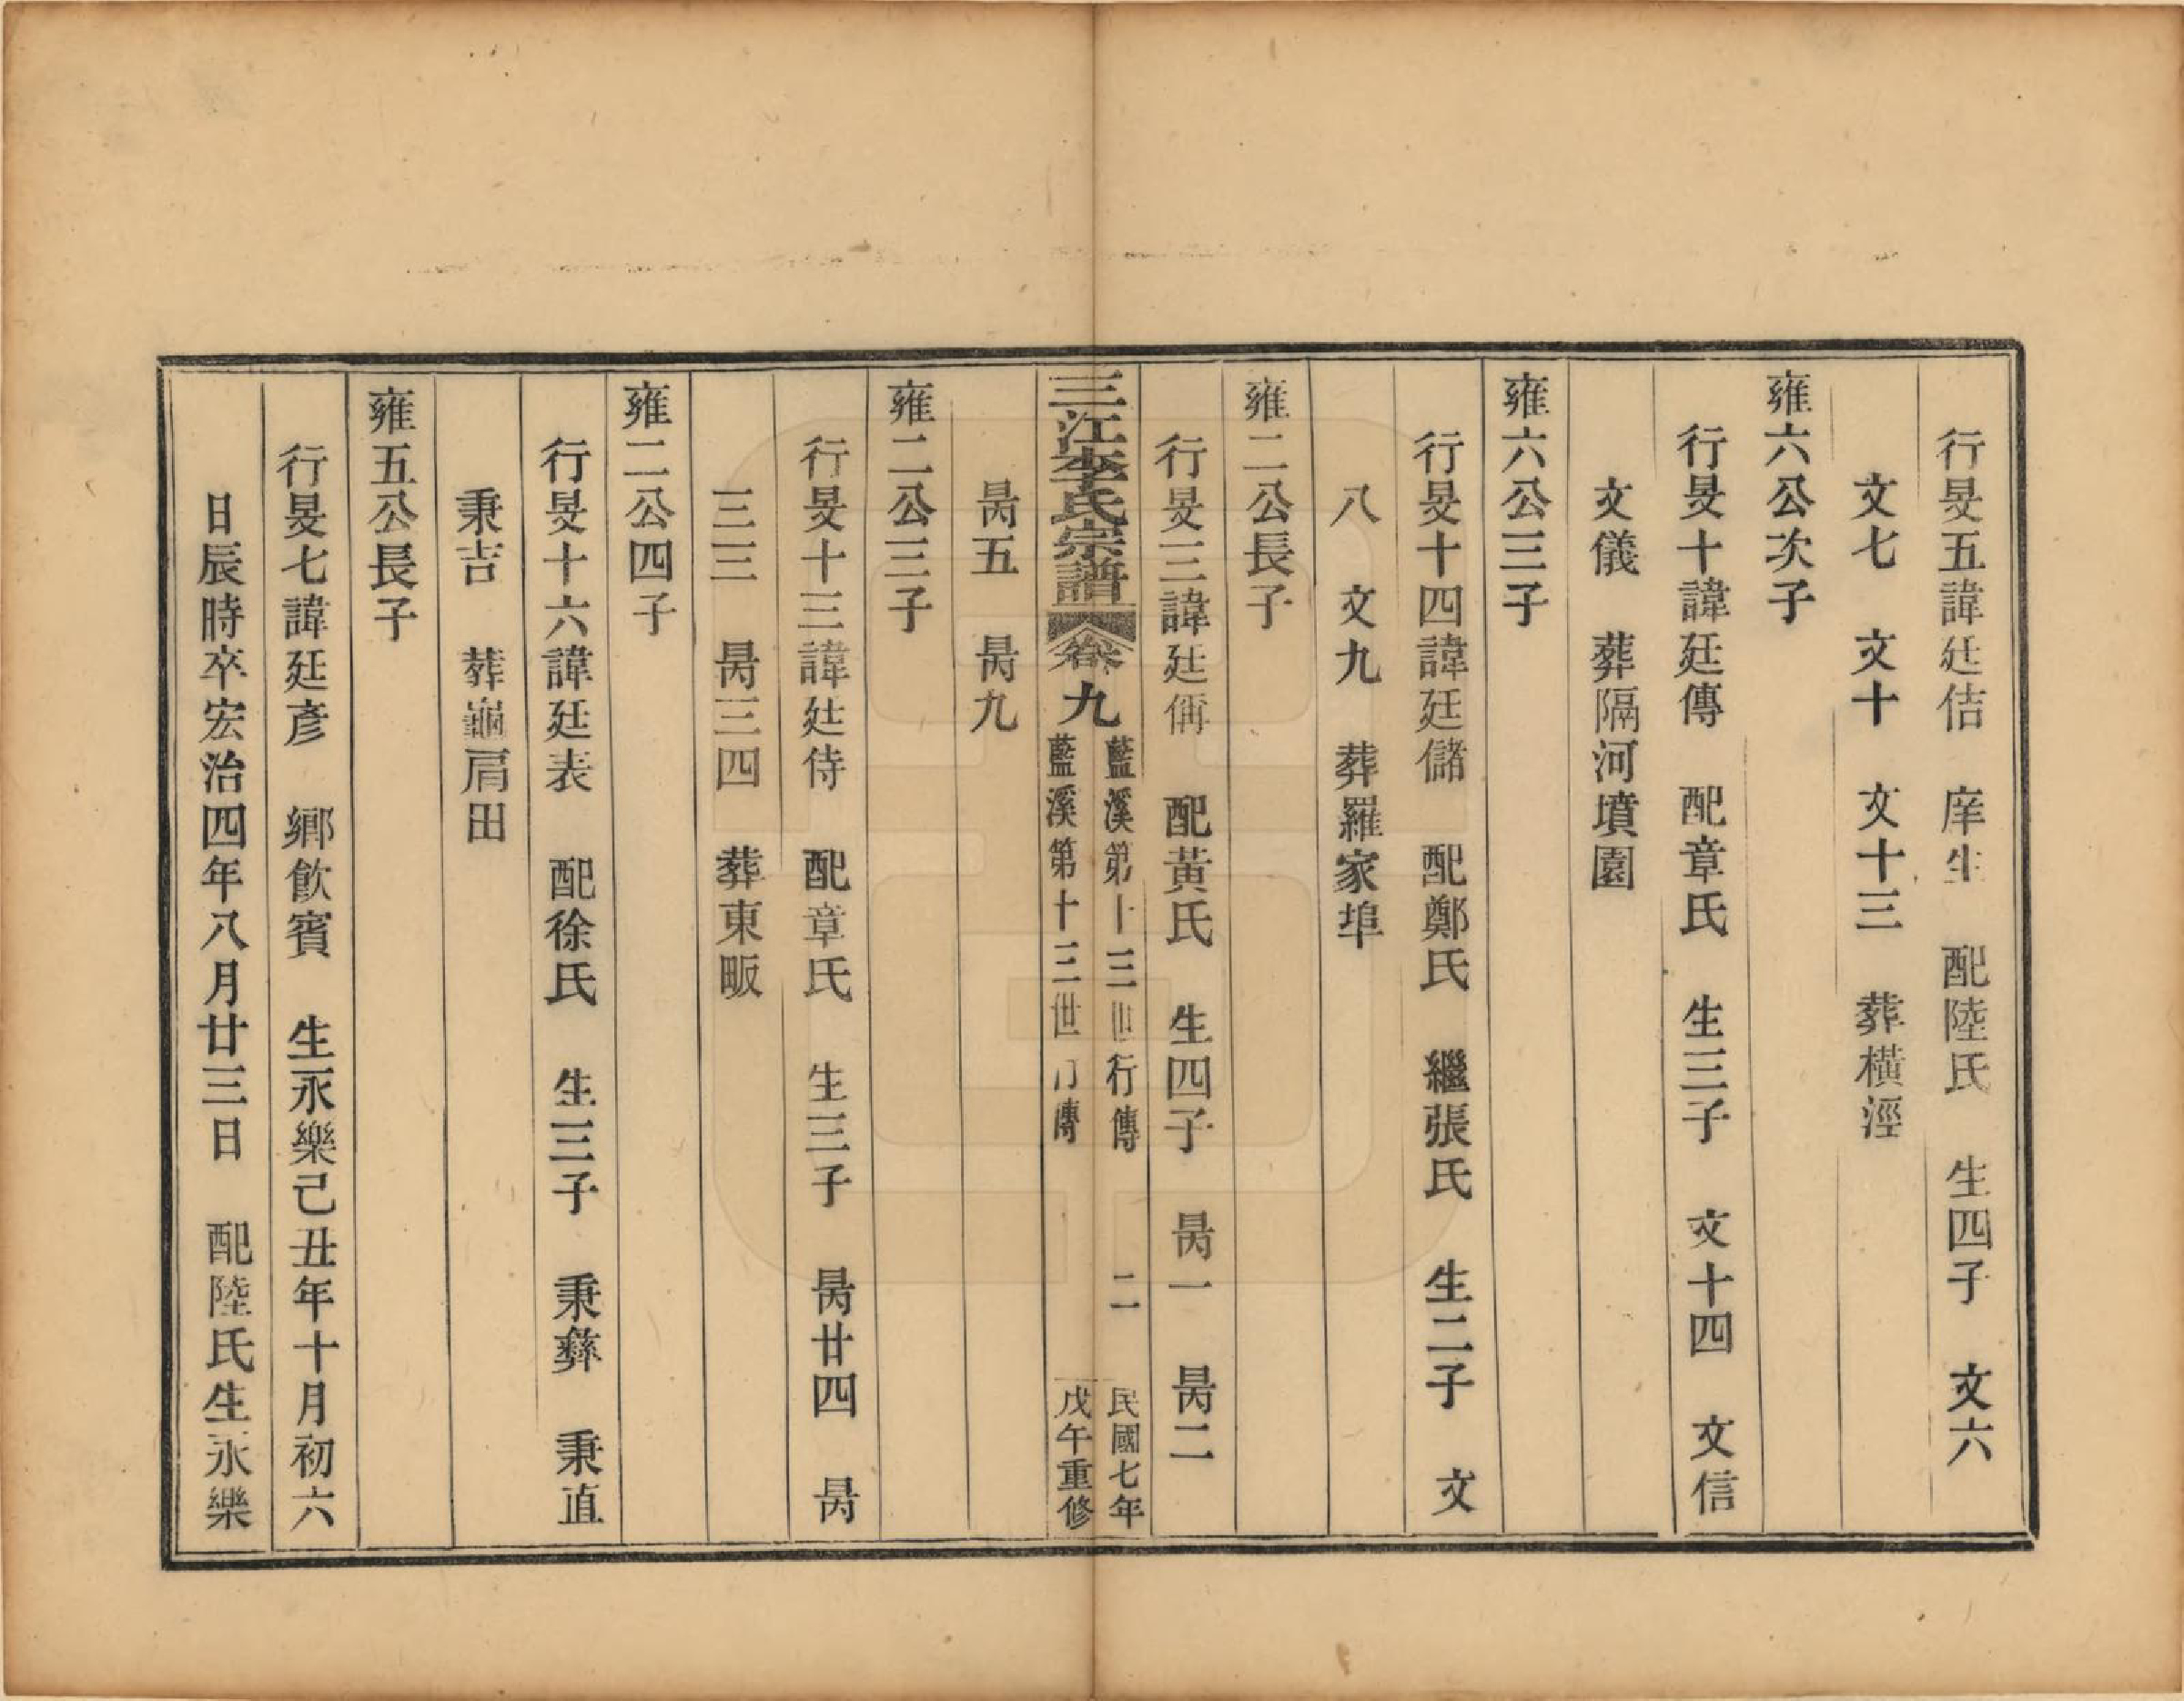 行旻五諱廷佶　庠生　配陸氏　生四子　文六
文七　文十　文十三　葬橫涇
雍六公次子
行旻十諱廷傳　配章氏　生三子　文十四　文信
文儀　葬隔河墳園
雍六公三子
行旻十四諱廷儲　配鄭氏　繼張氏　生二子　文
八　文九　葬羅家埠
雍二公長子
行旻三諱廷偁　配黃氏　生四子　昺一　昺二
三江李氏宗譜　卷九
藍溪第十三世行傳　二　民國七年
藍溪第十三世行傳　戊午重修
昺五　昺九
雍二公三子
行旻十三諱廷侍　配章氏　生三子　昺廿四　昺
三三　昺三四　葬東畈
雍二公四子
行旻十六諱廷表　配徐氏　生三子　秉彝　秉直
秉吉　葬龜肩田
雍五公長子
行旻七諱廷彥　鄉飲賓　生永樂己丑年十月初六
日辰時卒宏治四年八月廿三日　配陸氏生永樂